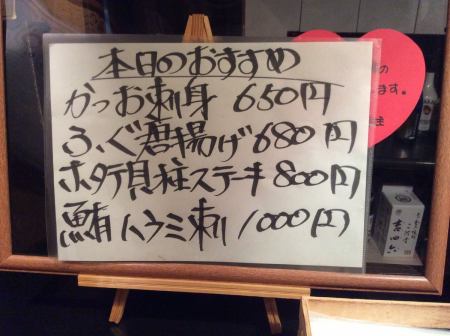 本日のおすすめ
かつお刺身 650円
ふぐ唐揚げ 680円
ホタテ貝柱ステーキ 800円
鮪ハラミ刺し 1000円
の
します。
主
吉四六